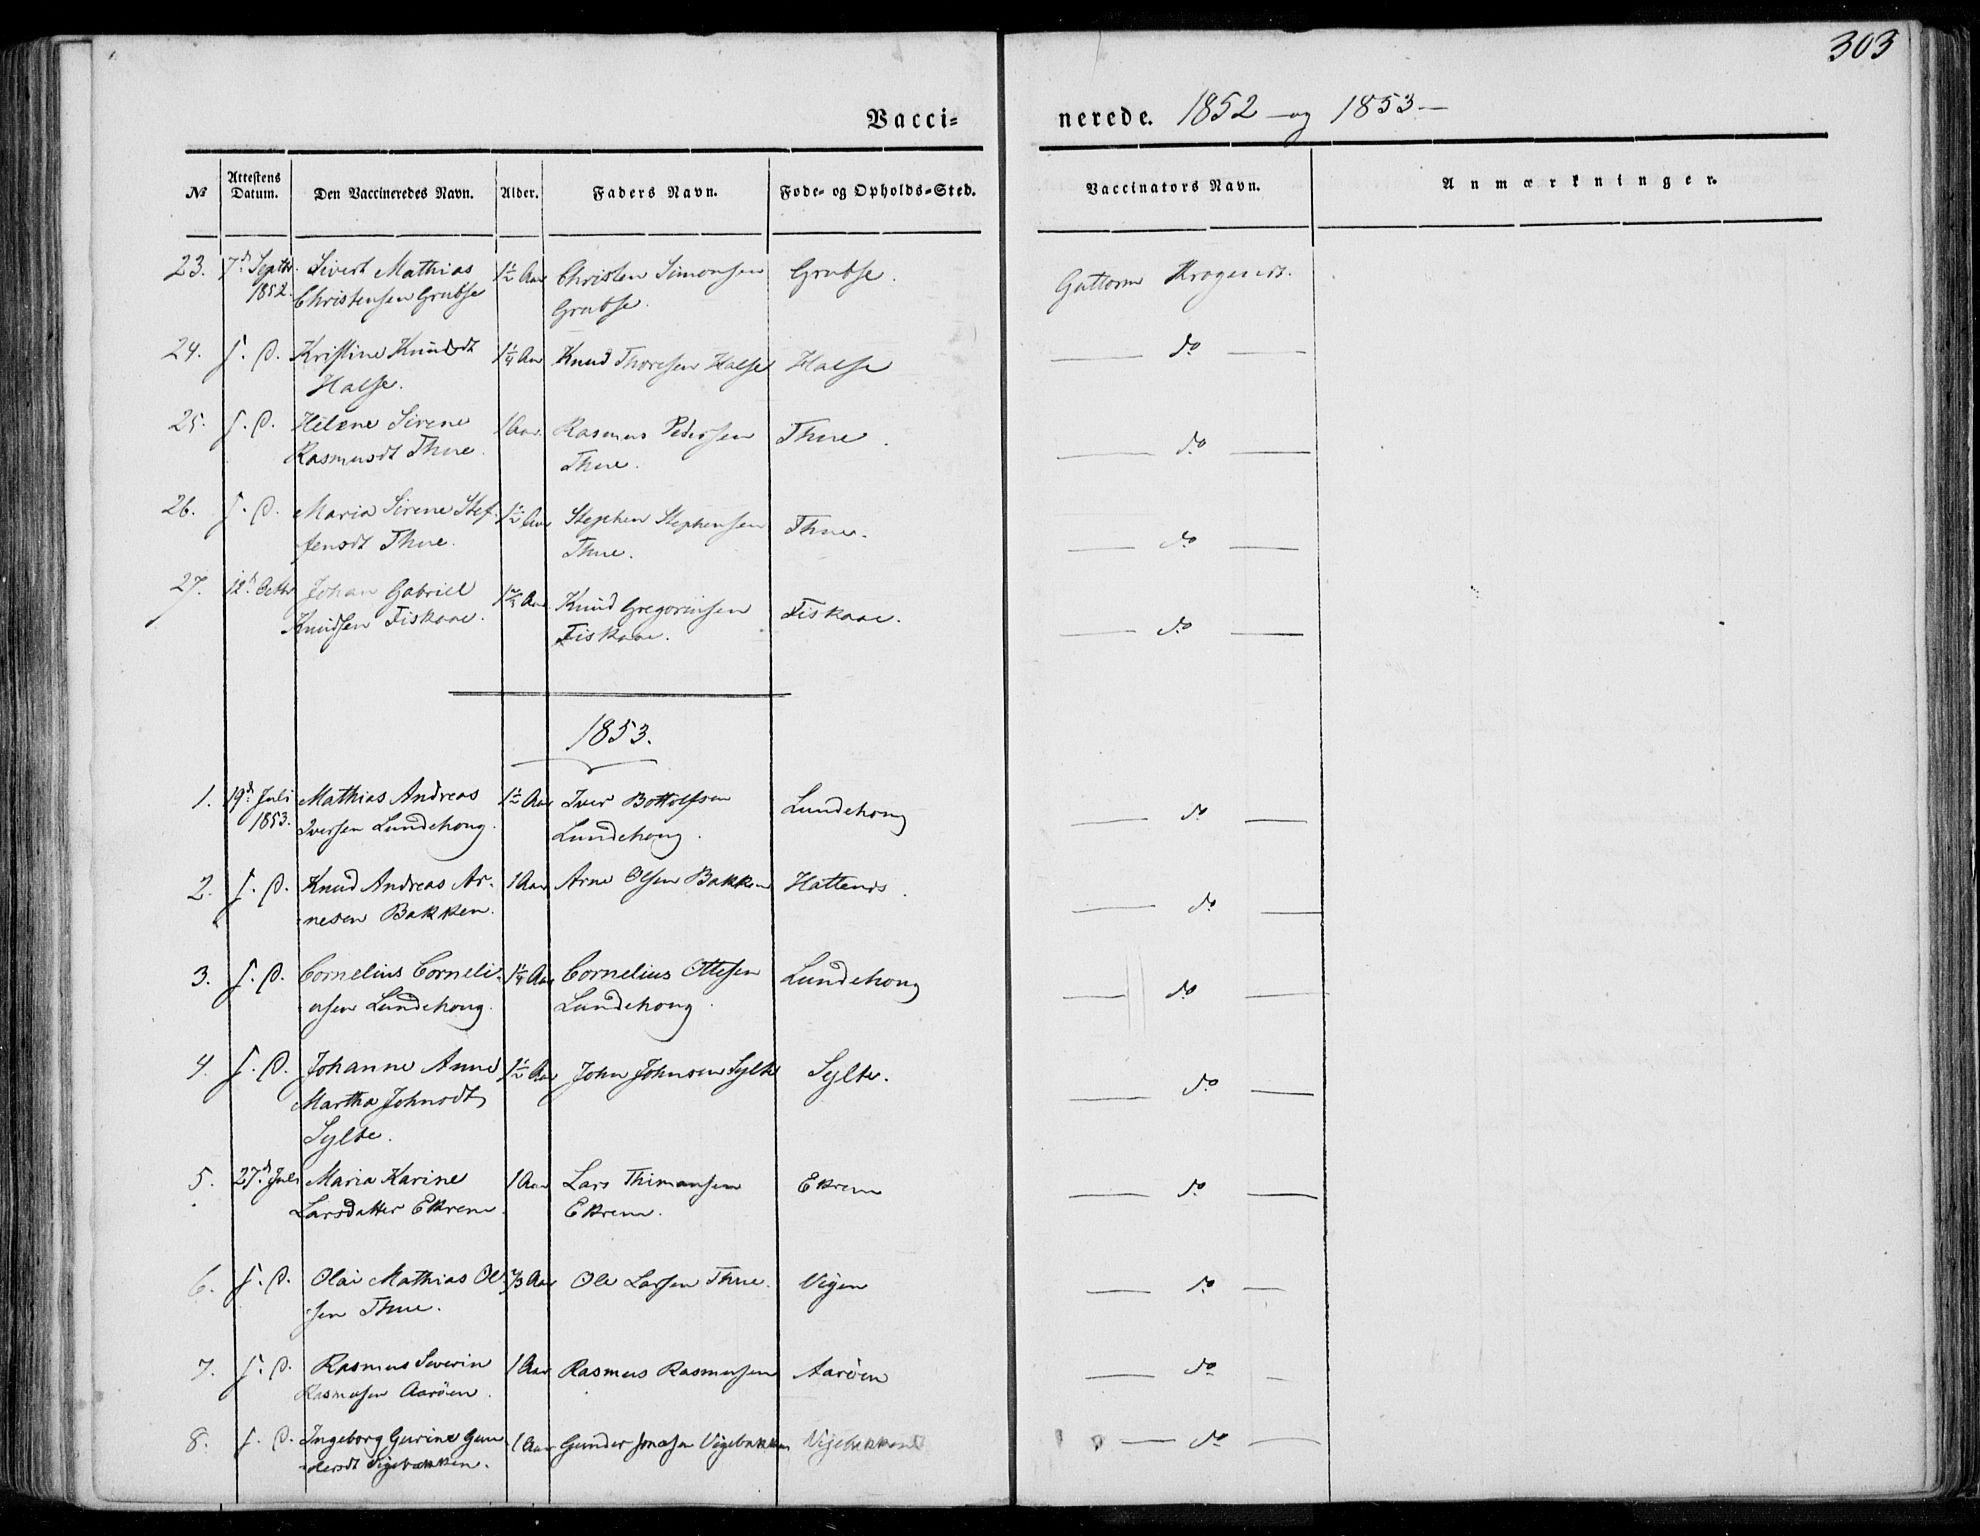 303
Vacci= nerede. 1852 og 1853
№ Attestens Datum. Den Vaccineredes Navn. Alder. Faders Navn. Føde- og Opholds-Sted. Vaccinators Navn. Anmærkninger.
23. 7d Septbr. Sivert Mathias 1½ Aar Christen Simonsen Grubse. Guttorm
1852. Christensen Grubse Grubse.
24. s. D. Kristine Knudsdt 1¼ Aar Knud Thoresen Halse Halse do
Halse.
25. s. D. Helene Sirene 1 Aar. Rasmus Pedersen Thue. do
Rasmusdt Thue. Thue.
26. s. D. Maria Sirene Stef- 1½ Aar Stephen Stephensen Thue. do
fensdt Thue. Thue.
27. 12d Octbr Johan Gabriel 1⅔ Aar Knud Gregoriusen Fiskaae. do
Knudsen Fiskaae. Fiskaae.
1853.
1. 19d Juli Mathias Andreas 1½ Aar Iver Bottolfsen Lundehoug do
1853. Iversen Lundehoug. Lundehoug.
2. s. D. Knud Andreas Ar- 1 Aar Arne Olsen Bakken do
nesen Bakken.
3. s. D. Cornelius Corneli- 1¼ Aar Cornelius Ottesen Lundehoug do
usen Lundehoug. Lundehoug.
4. s. D. Johanne Anne 1½ Aar John Johnsen Sylte Sylte. do
Martha Johnsdt
Sylte.
5. 27d Juli Maria Karine 1 Aar Lars Thimansen Ekrem do
Larsdatter Ekrem. Ekrem.
6. s. D. Olai Mathias Ol- ⅔ Aar Ole Larsen Thue. Vigen do
sen Thue.
7. s. D. Rasmus Severin 1 Aar Rasmus Rasmusen Aarøen do
Rasmusen Aarøen.
8. s. D. Ingeborg Gurine Gun- 1 Aar Gunder Jonasen Vigebakken Vigebakken do
dersdt Vigebakken.